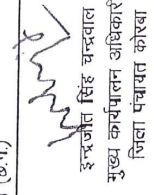 (छ.ग.)
इन्द्रजीत सिंह चन्द्रवाल
मुख्य कार्यपालन अधिकारी
जिला पंचायत कोरबा